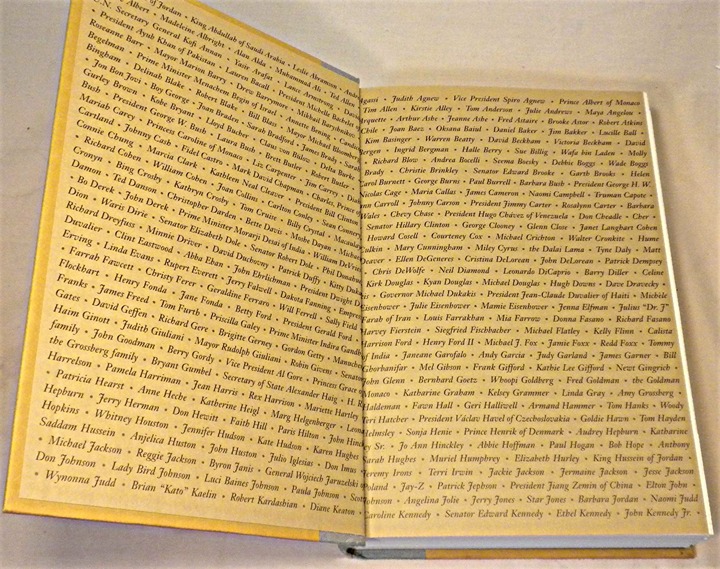 of Jordan • King Abdullah of Saudi Arabia • Leslie Abramson •
Albert • Madeleine Albright • Alan Alda • Muhammad Ali • Ted Allen
U.N. Secretary General Kofi Annan • Yasir Arafat • Lance Armstrong •
• President Ayub Khan of Pakistan • Lauren Bacall • President Michelle Bachelet
Roseanne Barr • Mayor Marion Barry • Drew Barrymore • Mikhail Baryshnikov
Begelman • Prime Minister Menachem Begin of Israel • Annette Bening •
Bingham • Delinah Blake • Robert Blake • Bill Blass • Mayor Michael Bloomberg
Jon Bon Jovi • Boy George • Joan Braden • Sarah Bradford • James Brady •
Gurley Brown • Kobe Bryant • Lloyd Bucher • Claus von Bulow • Delta Burke
Bush • President George W. Bush • Laura Bush • Brett Butler • Robert Butler
Mariah Carey • Princess Caroline of Monaco • Liz Carpenter • Jim Carrey •
Cartland • Johnny Cash • Fidel Castro • Mark David Chapman • Charles, Prince
Connie Chung • Marcia Clark • Kathleen Neal Cleaver • President Bill Clinton
• Richard Cohen • William Cohen • Joan Collins • Carlton Conley • Sean
Cronyn • Bing Crosby • Kathryn Crosby • Tom Cruise • Billy Crystal •
Damon • Ted Danson • Christopher Darden • Bette Davis • Moshe Dayan •
• Bo Derek • John Derek • Prime Minister Morarji Desai of India • William
Dion • Waris Dirie • Senator Elizabeth Dole • Senator Robert Dole • Phil
Richard Dreyfuss • Minnie Driver • David Duchovny • Patrick Duffy • Kitty
Duvalier • Clint Eastwood • Abba Eban • John Ehrlichman • President Dwight D.
Erving • Linda Evans • Rupert Everett • Jerry Falwell • Dakota Fanning •
• Farrah Fawcett • Christy Ferer • Geraldine Ferraro • Will Ferrell • Sally Field
Flockhart • Henry Fonda • Jane Fonda • Betty Ford • President Gerald Ford •
Franks • James Freed • Tom Furth • Priscilla Galey • Prime Minister Indira Gandhi
Gates • David Geffen • Richard Gere • Brigitte Gerney • Gordon Getty •
Haim Ginott • Judith Giuliani • Mayor Rudolph Giuliani • Robin Givens •
family • John Goodman • Berry Gordy • Vice President Al Gore • Princess Grace of
the Grossberg family • Bryant Gumbel • Secretary of State Alexander Haig • H. R.
Harrelson • Pamela Harriman • Jean Harris • Rex Harrison • Mariette Hartley
• Patricia Hearst • Anne Heche • Katherine Heigl • Marg Helgenberger •
Hepburn • Jerry Herman • Don Hewitt • Faith Hill • Paris Hilton • John
Hopkins • Whitney Houston • Jennifer Hudson • Kate Hudson • Karen Hughes
Saddam Hussein • Anjelica Huston • John Huston • Julio Iglesias • Don Imus
• Michael Jackson • Reggie Jackson • Byron Janis • General Wojciech Jaruzelski
Don Johnson • Lady Bird Johnson • Luci Baines Johnson • Paula Johnson •
• Wynonna Judd • Brian “Kato” Kaelin • Robert Kardashian • Diane Keaton
Agassi • Judith Agnew • Vice President Spiro Agnew • Prince Albert of Monaco
Tim Allen • Kirstie Alley • Tom Anderson • Julie Andrews • Maya Angelou •
• Arthur Ashe • Jeanne Ashe • Fred Astaire • Brooke Astor • Robert Atkins
Chile • Joan Baez • Oksana Baiul • Daniel Baker • Jim Bakker • Lucille Ball
• Kim Basinger • Warren Beatty • David Beckham • Victoria Beckham • David
Bergen • Ingrid Bergman • Halle Berry • Sue Billig • Wafa bin Laden • Molly
• Richard Blow • Andrea Bocelli • Seema Boesky • Debbie Boggs • Wade Boggs
Brady • Christie Brinkley • Senator Edward Brooke • Garth Brooks • Helen
Carol Burnett • George Burns • Paul Burrell • Barbara Bush • President George H. W.
Nicolas Cage • Maria Callas • James Cameron • Naomi Campbell • Truman Capote •
Carroll • Johnny Carson • President Jimmy Carter • Rosalynn Carter • Barbara
Wales • Chevy Chase • President Hugo Chávez of Venezuela • Don Cheadle • Cher
Senator Hillary Clinton • George Clooney • Glenn Close • Janet Langhart Cohen
Howard Cosell • Courteney Cox • Michael Crichton • Walter Cronkite • Hume
Culkin • Mary Cunningham • Miley Cyrus • the Dalai Lama • Tyne Daly • Matt
Deaver • Ellen DeGeneres • Cristina DeLorean • John DeLorean • Patrick Dempsey
• Chris DeWolfe • Neil Diamond • Leonardo DiCaprio • Barry Diller • Celine
Kirk Douglas • Kyan Douglas • Michael Douglas • Hugh Downs • Dave Dravecky
• Governor Michael Dukakis • President Jean-Claude Duvalier of Haiti • Michèle
Eisenhower • Julie Eisenhower • Mamie Eisenhower • Jenna Elfman • Julius “Dr. J”
Farah of Iran • Louis Farrakhan • Mia Farrow • Donna Fasano • Richard Fasano
Harvey Fierstein • Siegfried Fischbacher • Michael Flatley • Kelly Flinn • Calista
Harrison Ford • Henry Ford II • Michael J. Fox • Jamie Foxx • Redd Foxx • Tommy
of India • Janeane Garofalo • Andy Garcia • Judy Garland • James Garner • Bill
Ghorbanifar • Mel Gibson • Frank Gifford • Kathie Lee Gifford • Newt Gingrich •
• John Glenn • Bernhard Goetz • Whoopi Goldberg • Fred Goldman • the Goldman
of Monaco • Katharine Graham • Kelsey Grammer • Linda Gray • Amy Grossberg
Haldeman • Fawn Hall • Geri Halliwell • Armand Hammer • Tom Hanks • Woody
Teri Hatcher • President Václav Havel of Czechoslovakia • Goldie Hawn • Tom Hayden
Helmsley • Sonja Henie • Prince Henrik of Denmark • Audrey Hepburn • Katharine
Sr. • Jo Ann Hinckley • Abbie Hoffman • Paul Hogan • Bob Hope • Anthony
Sarah Hughes • Muriel Humphrey • Elizabeth Hurley • King Hussein of Jordan •
Jeremy Irons • Terri Irwin • Jackie Jackson • Jermaine Jackson • Jesse Jackson
of Poland • Jay-Z • Patrick Jephson • President Jiang Zemin of China • Elton John
Johnson • Angelina Jolie • Jerry Jones • Star Jones • Barbara Jordan • Naomi Judd
Caroline Kennedy • Senator Edward Kennedy • Ethel Kennedy • John Kennedy Jr. •